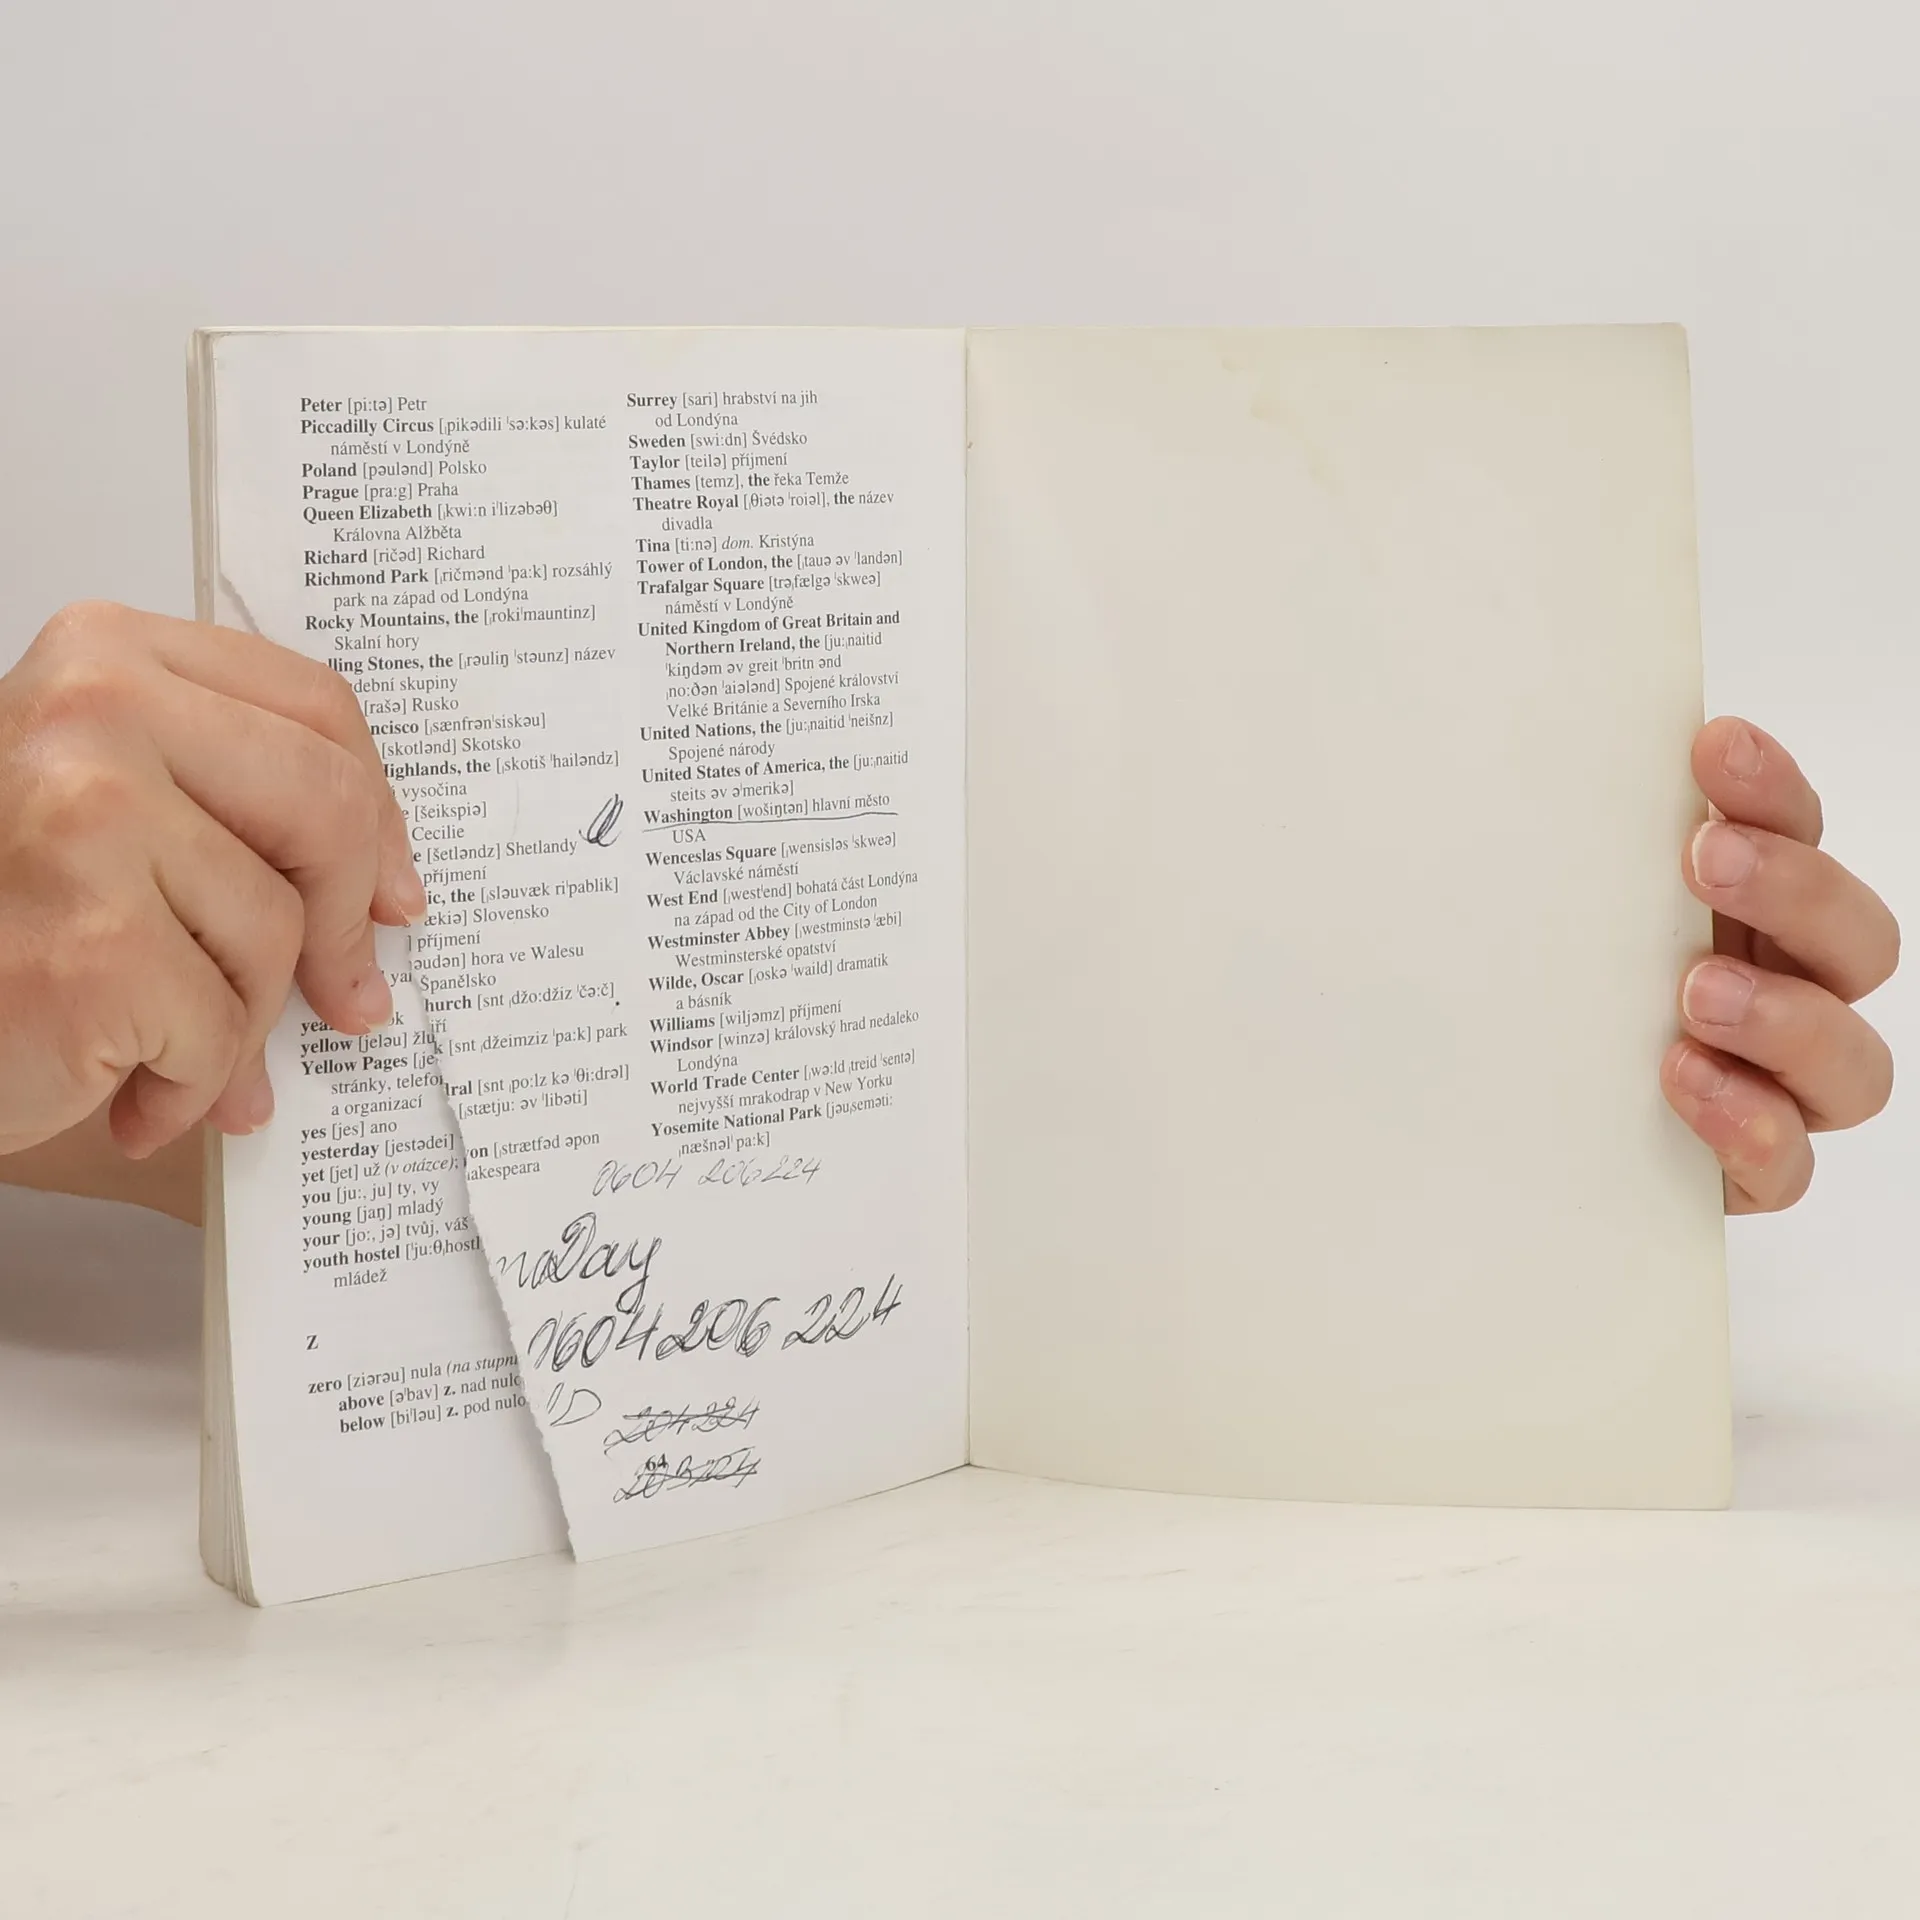 Peter [pi:tə] Petr
Piccadilly Circus [ˌpikədili ˈsə:kəs] kulaté
náměstí v Londýně
Poland [pəulənd] Polsko
Prague [pra:g] Praha
Queen Elizabeth [ˌkwi:n iˈlizəbəθ]
Královna Alžběta
Richard [ričəd] Richard
Richmond Park [ˌričmənd ˈpa:k] rozsáhlý
park na západ od Londýna
Rocky Mountains, the [ˌrokiˈmauntinz]
Skalní hory
lling Stones, the [ˌrəuliŋ ˈstəunz] název
dební skupiny
[rašə] Rusko
ncisco [ˌsænfrənˈsiskəu]
[skotlənd] Skotsko
Highlands, the [ˌskotiš ˈhailəndz]
vysočina
e [šeikspiə]
Cecilie
e [šetləndz] Shetlandy
příjmení
ic, the [ˌsləuvæk riˈpablik]
ækiə] Slovensko
] příjmení
əudən] hora ve Walesu
Španělsko
hurch [snt ˌdžo:džiz ˈčə:č]
iří
k [snt ˌdžeimziz ˈpa:k] park
dral [snt ˌpo:lz kə ˈθi:drəl]
[ˌstætju: əv ˈlibəti]
on [ˌstrætfəd əpon
akespeara
yea ok
yellow [jeləu] žlu
Yellow Pages [ˌje
stránky, telefo
a organizací
yes [jes] ano
yesterday [jestədei]
yet [jet] už (v otázce);
you [ju:, ju] ty, vy
young [jaŋ] mladý
your [jo:, jə] tvůj, váš
youth hostel [ˈju:θˌhostl
mládež
Z
zero [ziərəu] nula (na stupni
above [əˈbav] z. nad nulo
below [biˈləu] z. pod nulo
Surrey [sari] hrabství na jih
od Londýna
Sweden [swi:dn] Švédsko
Taylor [teilə] příjmení
Thames [temz], the řeka Temže
Theatre Royal [ˌθiətə ˈroiəl], the název
divadla
Tina [ti:nə] dom. Kristýna
Tower of London, the [ˌtauə əv ˈlandən]
Trafalgar Square [trəˌfælgə ˈskweə]
náměstí v Londýně
United Kingdom of Great Britain and
Northern Ireland, the [ju:ˌnaitid
ˈkiŋdəm əv greit ˈbritn ənd
ˌno:ðən ˈaiələnd] Spojené království
Velké Británie a Severního Irska
United Nations, the [ju:ˌnaitid ˈneišnz]
Spojené národy
United States of America, the [ju:ˌnaitid
steits əv əˈmerikə]
Washington [wošiŋtən] hlavní město
USA
Wenceslas Square [ˌwensisləs ˈskweə]
Václavské náměstí
West End [ˌwestˈend] bohatá část Londýna
na západ od the City of London
Westminster Abbey [ˌwestminstə ˈæbi]
Westminsterské opatství
Wilde, Oscar [ˌoskə ˈwaild] dramatik
a básník
Williams [wiljəmz] příjmení
Windsor [winzə] královský hrad nedaleko
Londýna
World Trade Center [ˌwə:ld ˌtreid ˈsentə]
nejvyšší mrakodrap v New Yorku
Yosemite National Park [jəuˌseməti:
ˌnæšnəlˈ pa:k]
0604 206224
Day
0604 206 224
204224
64
203224